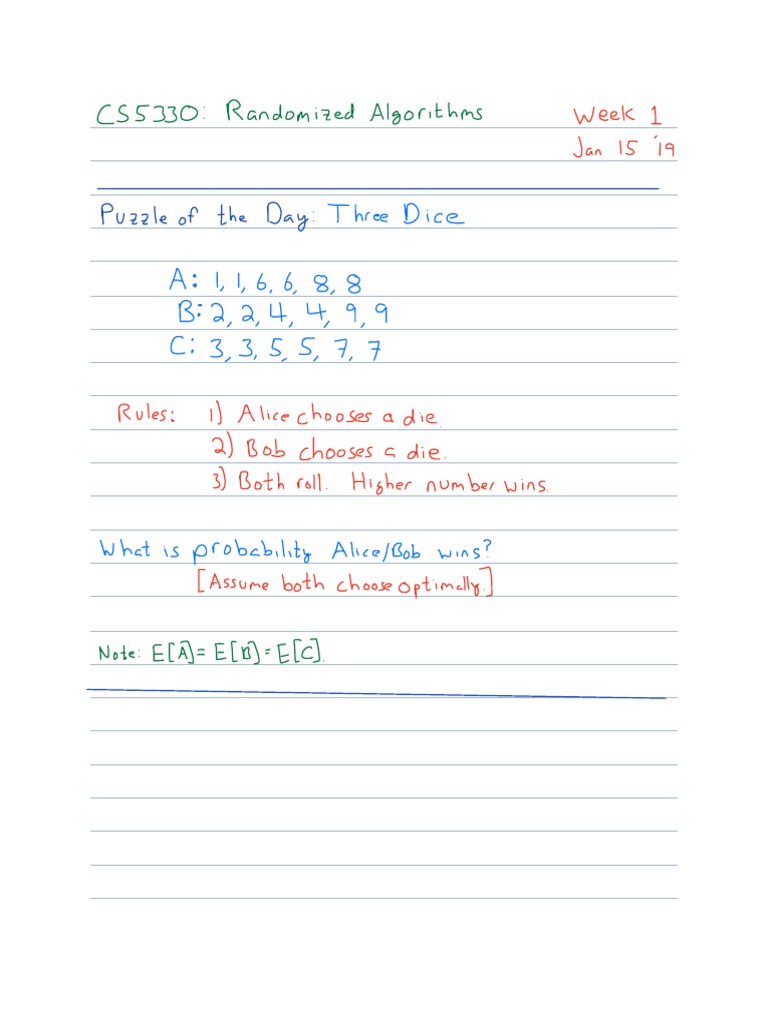 CS5330: Randomized Algorithms Week 1
Jan 15 '19
Puzzle of the Day: Three Dice
A: 1, 1, 6, 6, 8, 8
B: 2, 2, 4, 4, 9, 9
C: 3, 3, 5, 5, 7, 7
Rules: 1) Alice chooses a die.
2) Bob chooses a die.
3) Both roll. Higher number wins.
What is probability Alice/Bob wins?
[Assume both choose optimally.]
Note: E[A] = E[B] = E[C].